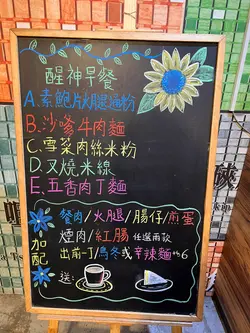 醒神早餐
A.素鮑片火腿通粉
B.沙嗲牛肉麵
C.雪菜肉絲米粉
D.叉燒米線
E.五香肉丁麵
加配
餐肉/火腿/腸仔/煎蛋
煙肉/紅腸 任選兩款
出前一丁/烏冬或辛辣麵+$6
送: